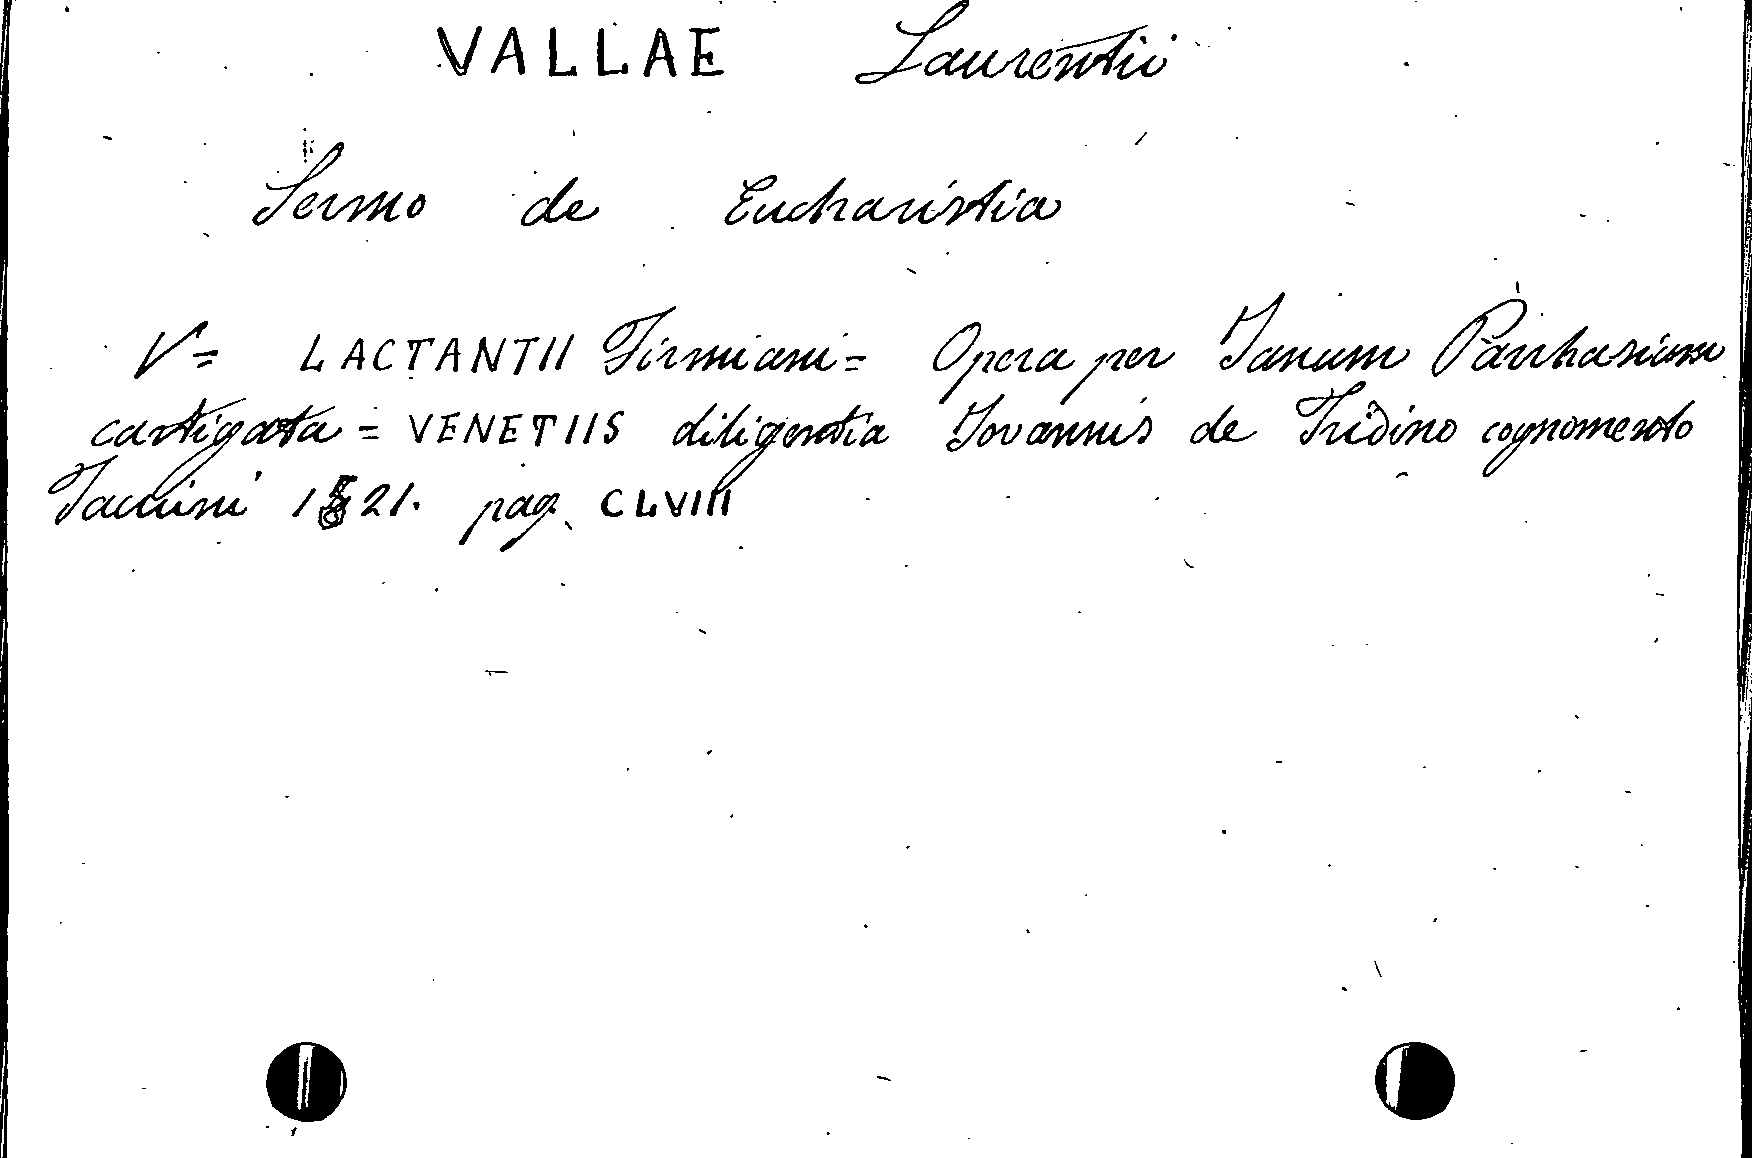 VALLAE Laurentii
Sermo de Eucharistia
V= LACTANTII Firmiani= Opera per Ianum Parrhasium
castigata = VENETIIS diligentia Iovannis de Tridino cognomento
Tacuini 1521. pag. CLVIII